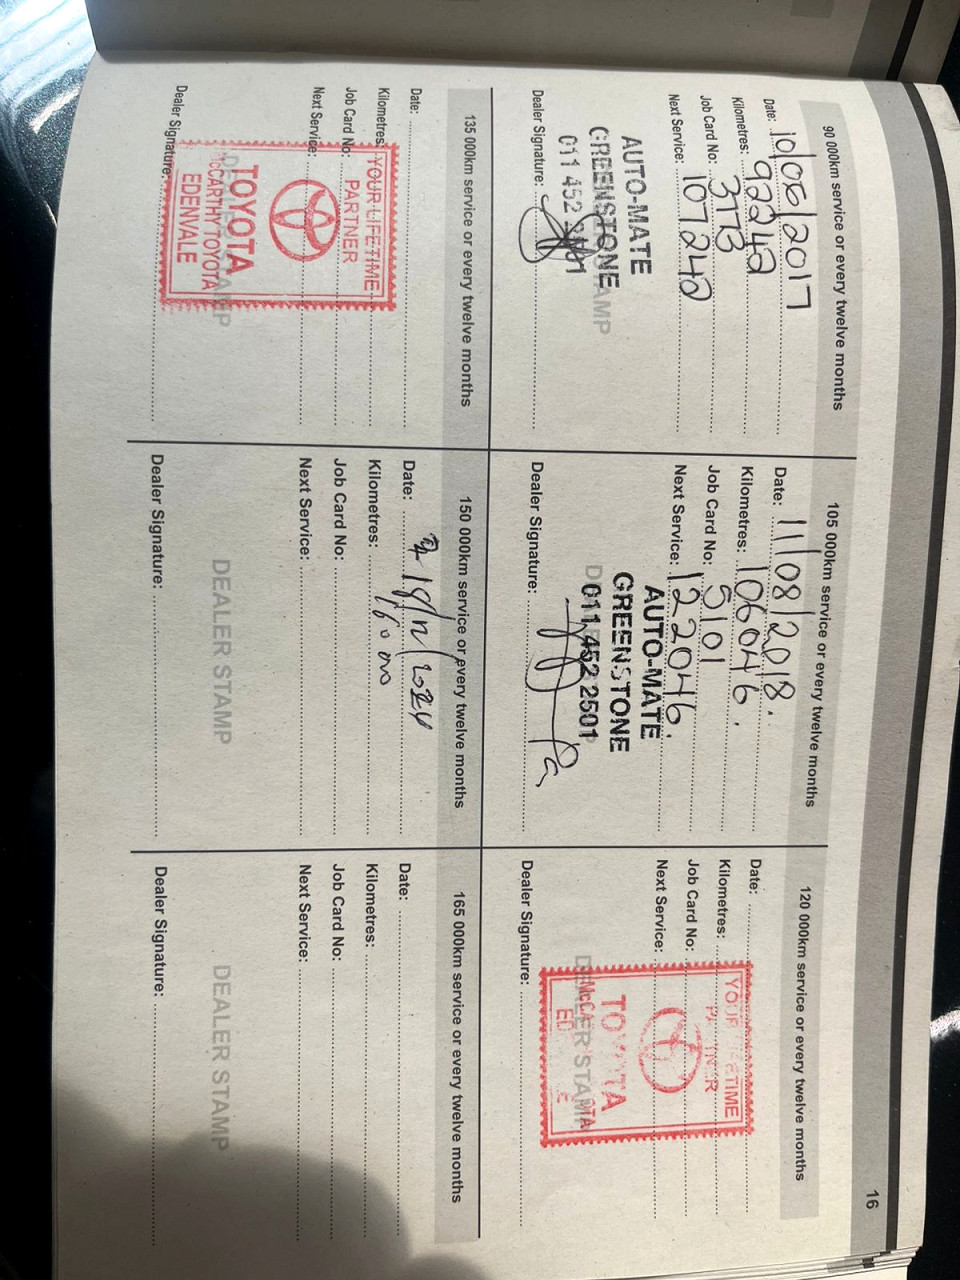 16
90 000km service or every twelve months
Date: 10/06/2017
Kilometres: 92242
Job Card No: 3173
Next Service: 107242
AUTO-MATE
GREENSTONE
011 452
Dealer Signature:
105 000km service or every twelve months
Date: 11/08/2018.
Kilometres: 106046.
Job Card No: 5101
Next Service: 122046.
AUTO-MATE
GREENSTONE
011 452 2501
Dealer Signature:
120 000km service or every twelve months
Date:
Kilometres:
Job Card No:
Next Service:
YOUR LIFETIME
PARTNER
TOYOTA
DEALER STAMP
Dealer Signature:
135 000km service or every twelve months
Date:
Kilometres:
Job Card No:
Next Service:
YOUR LIFETIME
PARTNER
TOYOTA
McCARTHY TOYOTA
EDENVALE
Dealer Signature:
150 000km service or every twelve months
Date: 18/12/2024
Kilometres:
Job Card No:
Next Service:
DEALER STAMP
Dealer Signature:
165 000km service or every twelve months
Date:
Kilometres:
Job Card No:
Next Service:
DEALER STAMP
Dealer Signature: